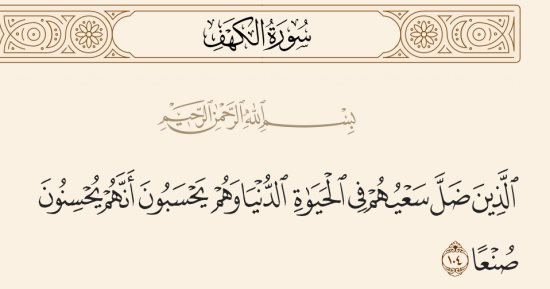 سُورَةُ الكَهْفِ
بِسْمِ اللَّهِ الرَّحْمَٰنِ الرَّحِيمِ
ٱلَّذِينَ ضَلَّ سَعْيُهُمْ فِي ٱلْحَيَوٰةِ ٱلدُّنْيَا وَهُمْ يَحْسَبُونَ أَنَّهُمْ يُحْسِنُونَ
صُنْعًا ١٠٤